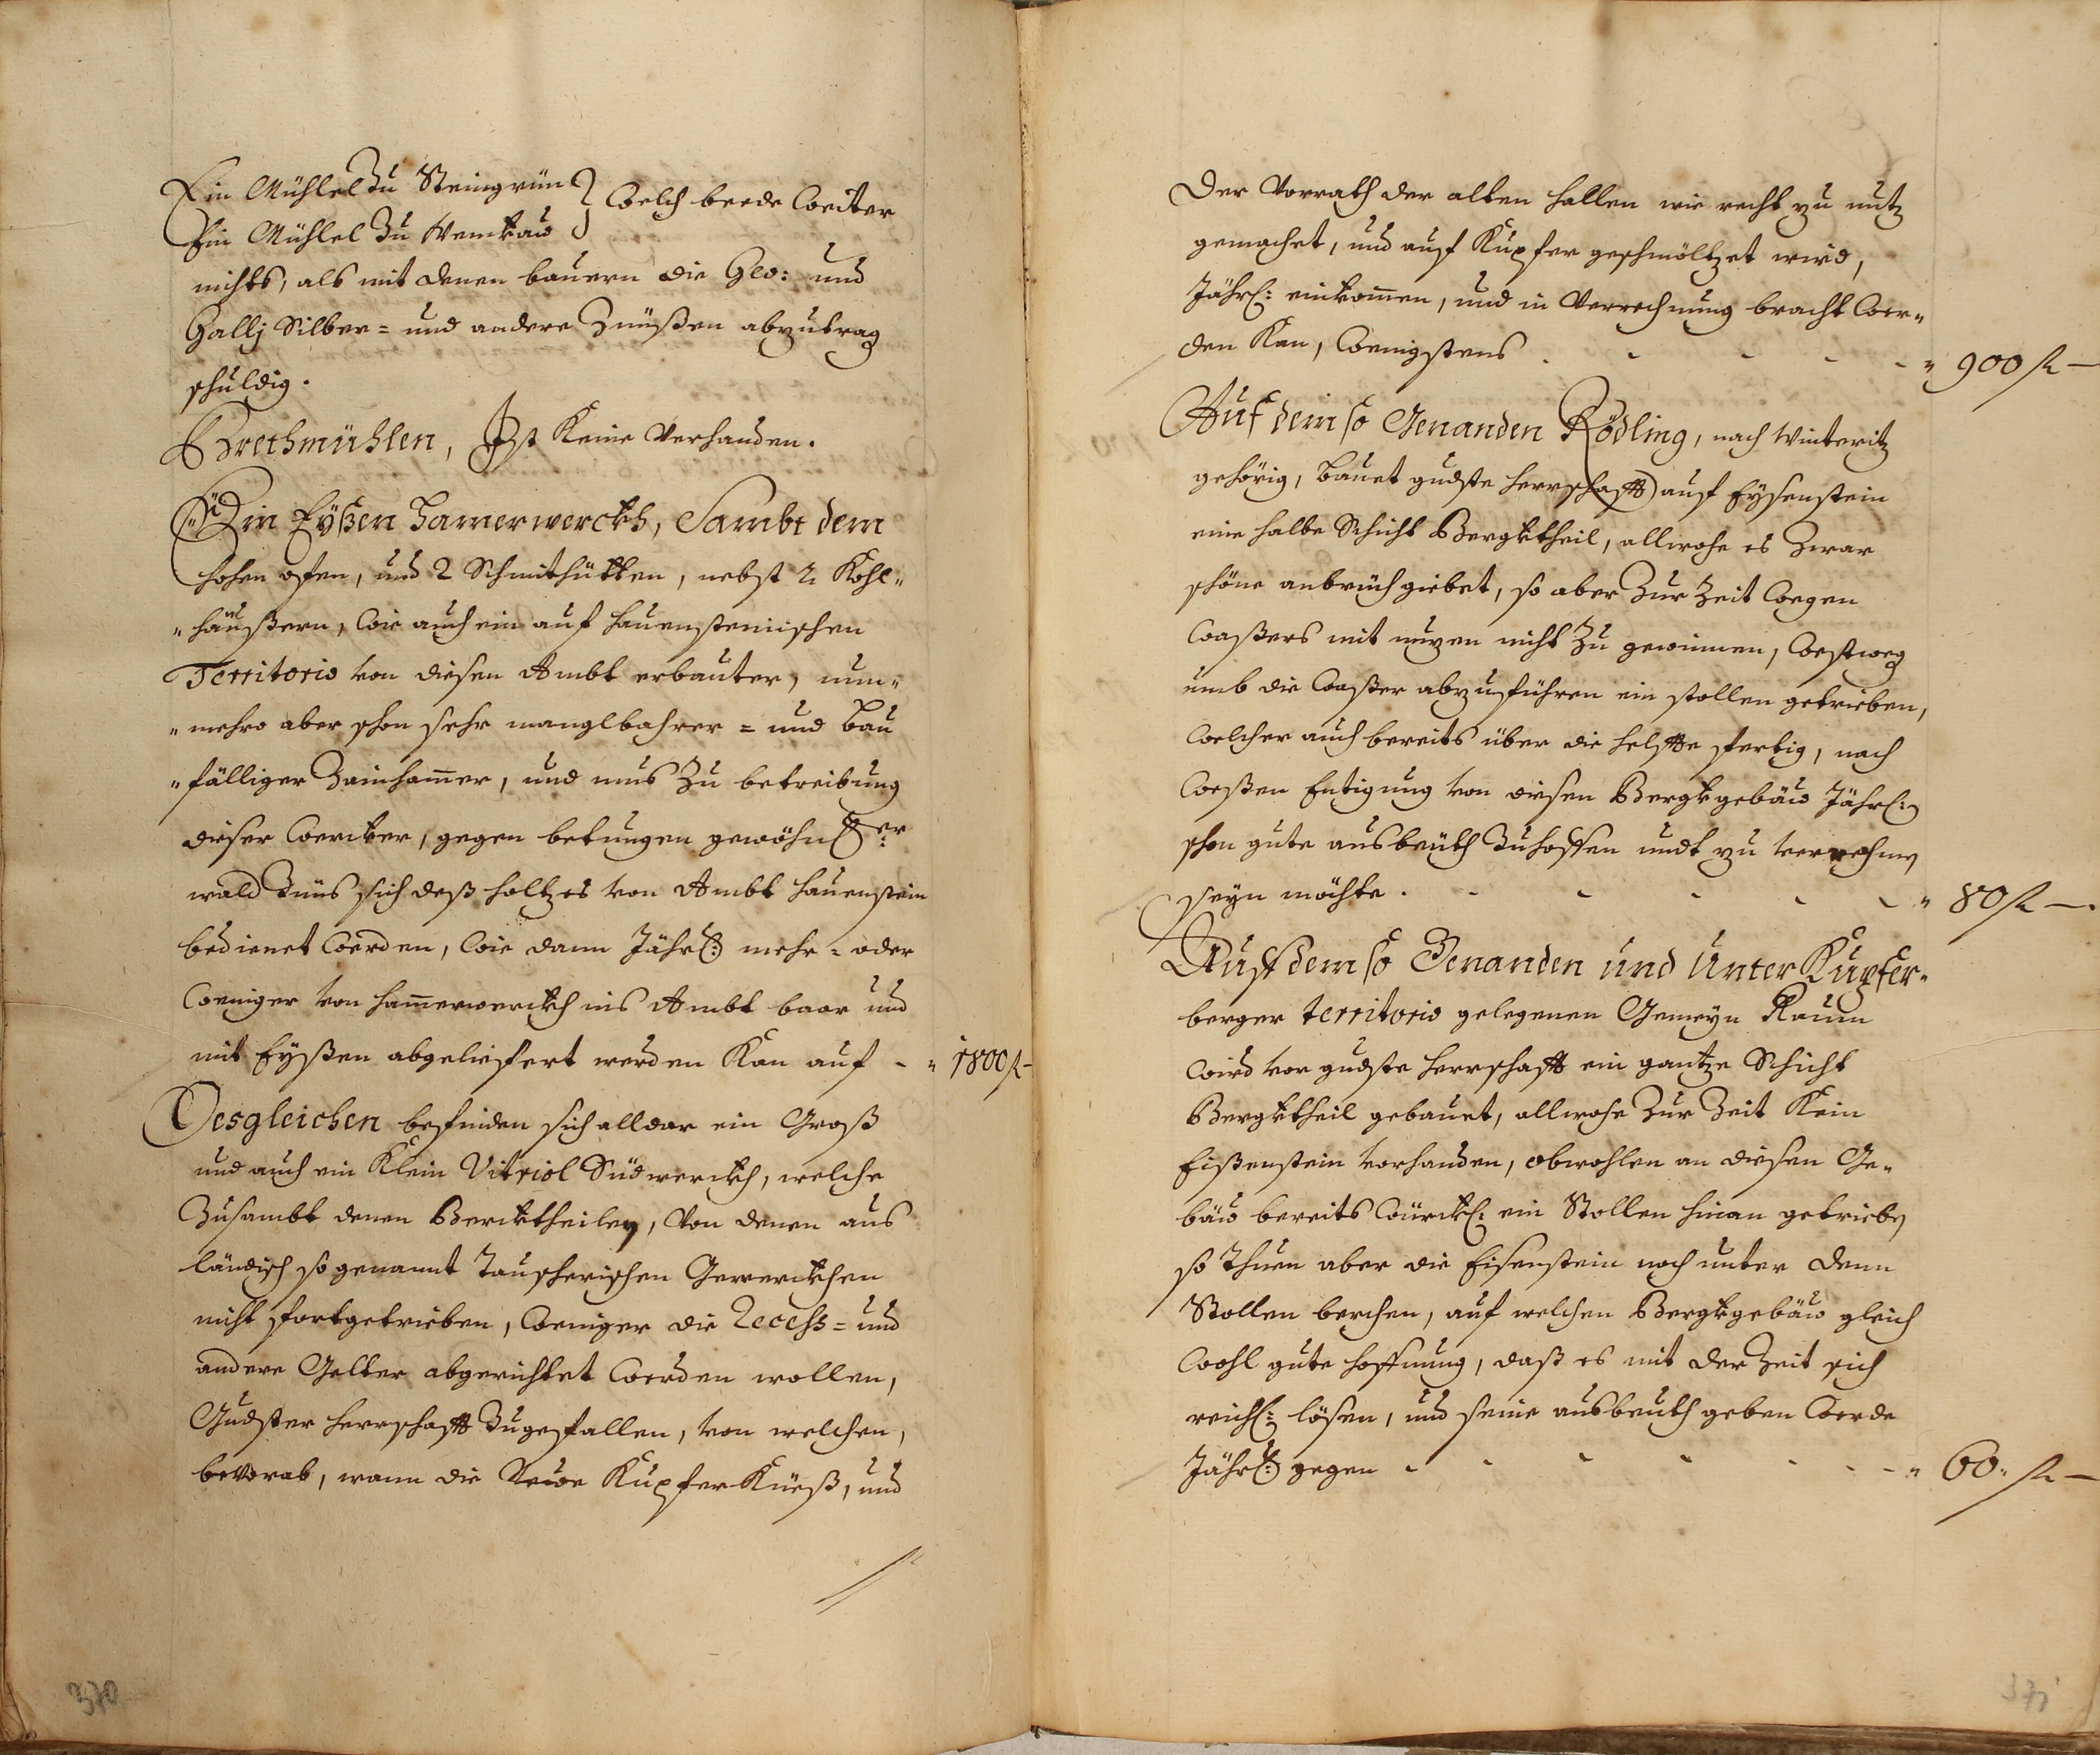 Ein Mühlel Zu Steingrün } Welch beede Weiter
Ein Mühlel Zu Wenkau
nichts, als mit denen bauern die Geo: und
Gallj Silber= und andere Zünßen abzutrag
schuldig.
Brethmühlen, Ist Keine Verhanden.
Ein Eÿßen Hamerwerckh, Sambt dem
hohen ofen, und 2 Schmithütten, nebst 2 Kohl„
„häußern, Wie auch ein auf hauensteinischen
Territorio von diesen Ambt erbauter, nun„
„mehro aber schon sehr manglbahrer = und Bau
„fälliger Zainhamer, und mus Zu betreibung
dieser Wercker, gegen betungen gewöhnl:er
wald Zünß sich deß holtzes von Ambt hauenstein
bedienet Werden, Wie dann Jährl: mehr = oder
Weniger von hamerwerckh ins Ambt baar und
mit Eÿßen abgeliefert werden Kan auf - „ 1800 fl -
Desgleichen befinden sich alldar ein Groß
und auch ein Klein Vitriol Südwerckh, welche
Zusambt denen Bercktheilen, Von denen aus
ländisch so genannt Tauscherischen Gewerckhen
nicht fortgetrieben, Weniger die Recess = und
andere Gelter abgerichtet Werden wollen,
Gndster herrschafft Zugefallen, von welchen,
bevorab, wann die Neue Kupfer Küeß, und
370
Der Vorrath der alten hallen wie recht zu nutz
gemachet, und auf Kupfer geschmöltzet wird,
Jährl: einkomen, und in Verrechnung bracht Wer„
den Kan, Wenigstens . - - - - „ 900 fl —
Auf dem so Genanden Rödling, nach Winteritz
gehörig, bauet gndste herrschafft auf Eÿsenstein
eine halbe Schicht Bergktheil, allwohe es Zwar
schöne anbrüch giebet, so aber Zur Zeit Wegen
Waßers mit nuzen nicht Zu gewinnen, Westweg
umb die Waßer abzuführen ein stollen getrieben,
Welcher auch bereits über die helffte fertig, nach
Weßen Entigung von diesen Bergkgebäu Jährl:
schon gute ausbeuth Zuhoffen undt zu verrechnen
seyn möchte . - - - - - „ 80 fl —.
Auff dem so Genanden und Unter Kupfer„
berger territorio gelegenen Gemeyn Raum
Wird vor gndste herrschafft ein gantze Schicht
Bergktheil gebauet, allwohe Zur Zeit Kein
Eißenstein vorhanden, obwohlen an diesen Ge„
bäu bereits Würckl: ein Stollen hinan getrieben
so thuen aber die Eisenstein noch unter denn
Stollen berchen, auf welchen Bergkgebäu gleich
Wohl gute hoffnung, daß es mit der Zeit sich
reichl: lösen, und seine ausbeuth geben Werde
Jährl: gegen - - - - - - „ 60„ fl —
371